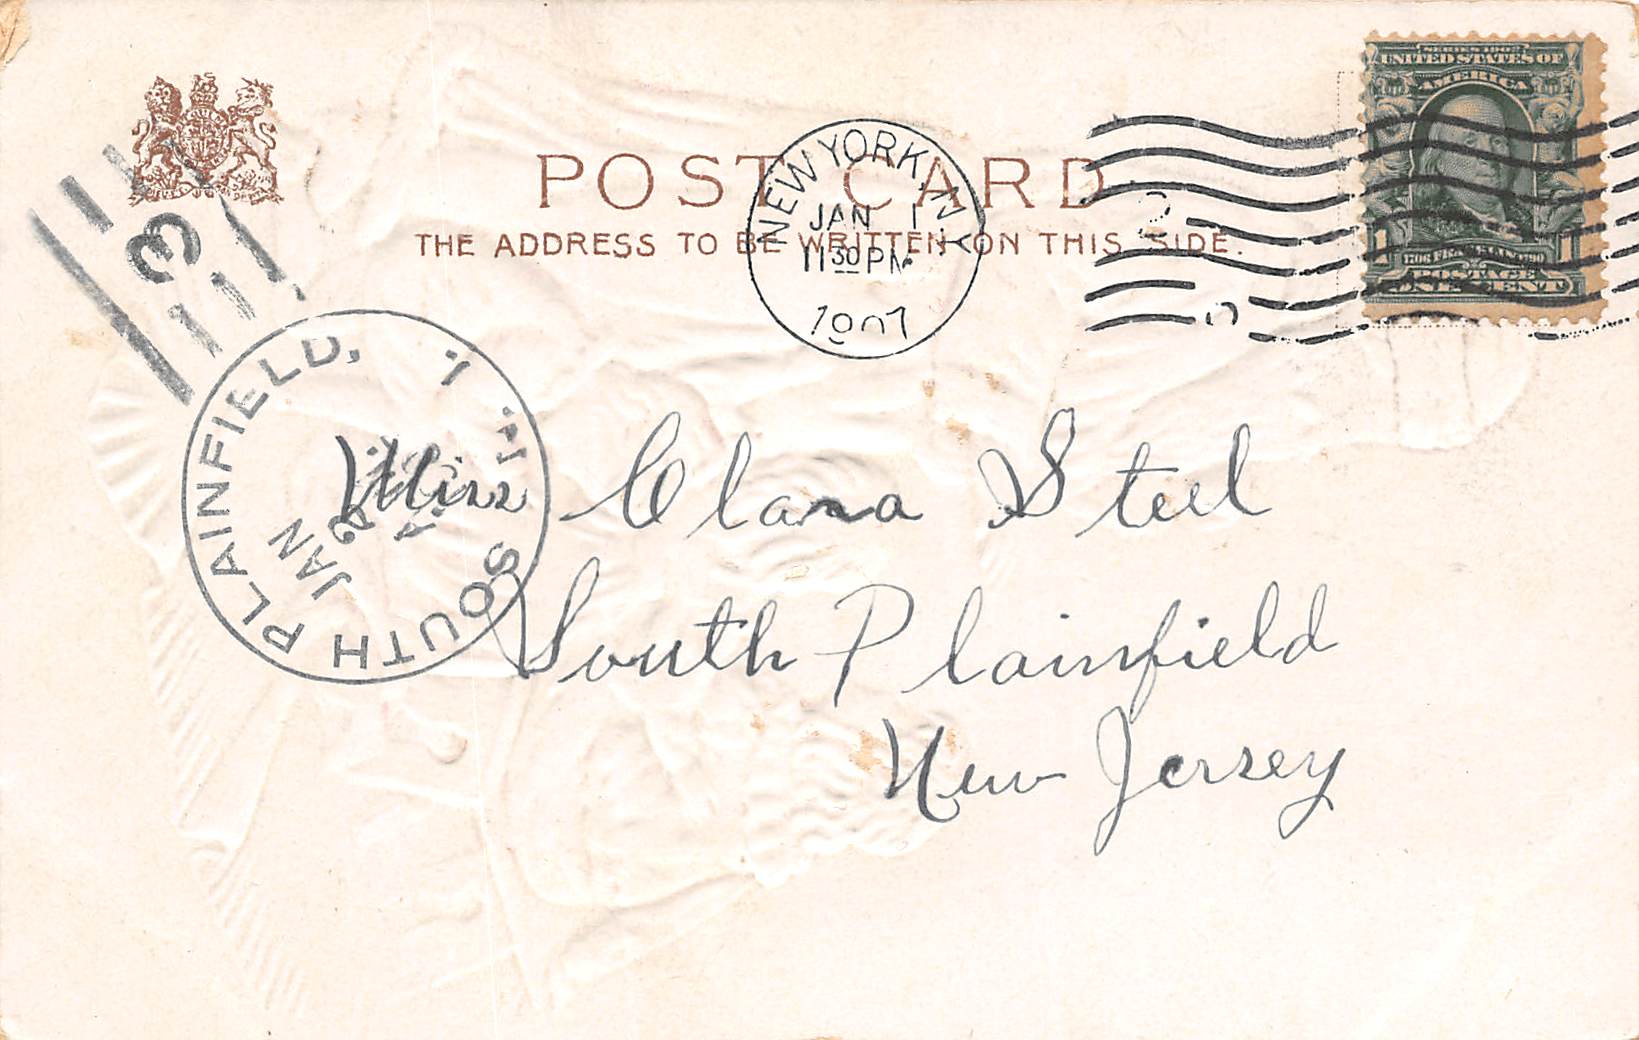 SERIES 1902
UNITED STATES OF
AMERICA
1706 FRANKLIN 1790
POSTAGE
1 ONE CENT 1
POST CARD
THE ADDRESS TO BE WRITTEN ON THIS SIDE.
NEW YORK, N.Y.
JAN 1
11 30 PM
1907
3
SOUTH PLAINFIELD, N.J.
JAN
JAN 2
Miss Clara Steel
South Plainfield
New Jersey